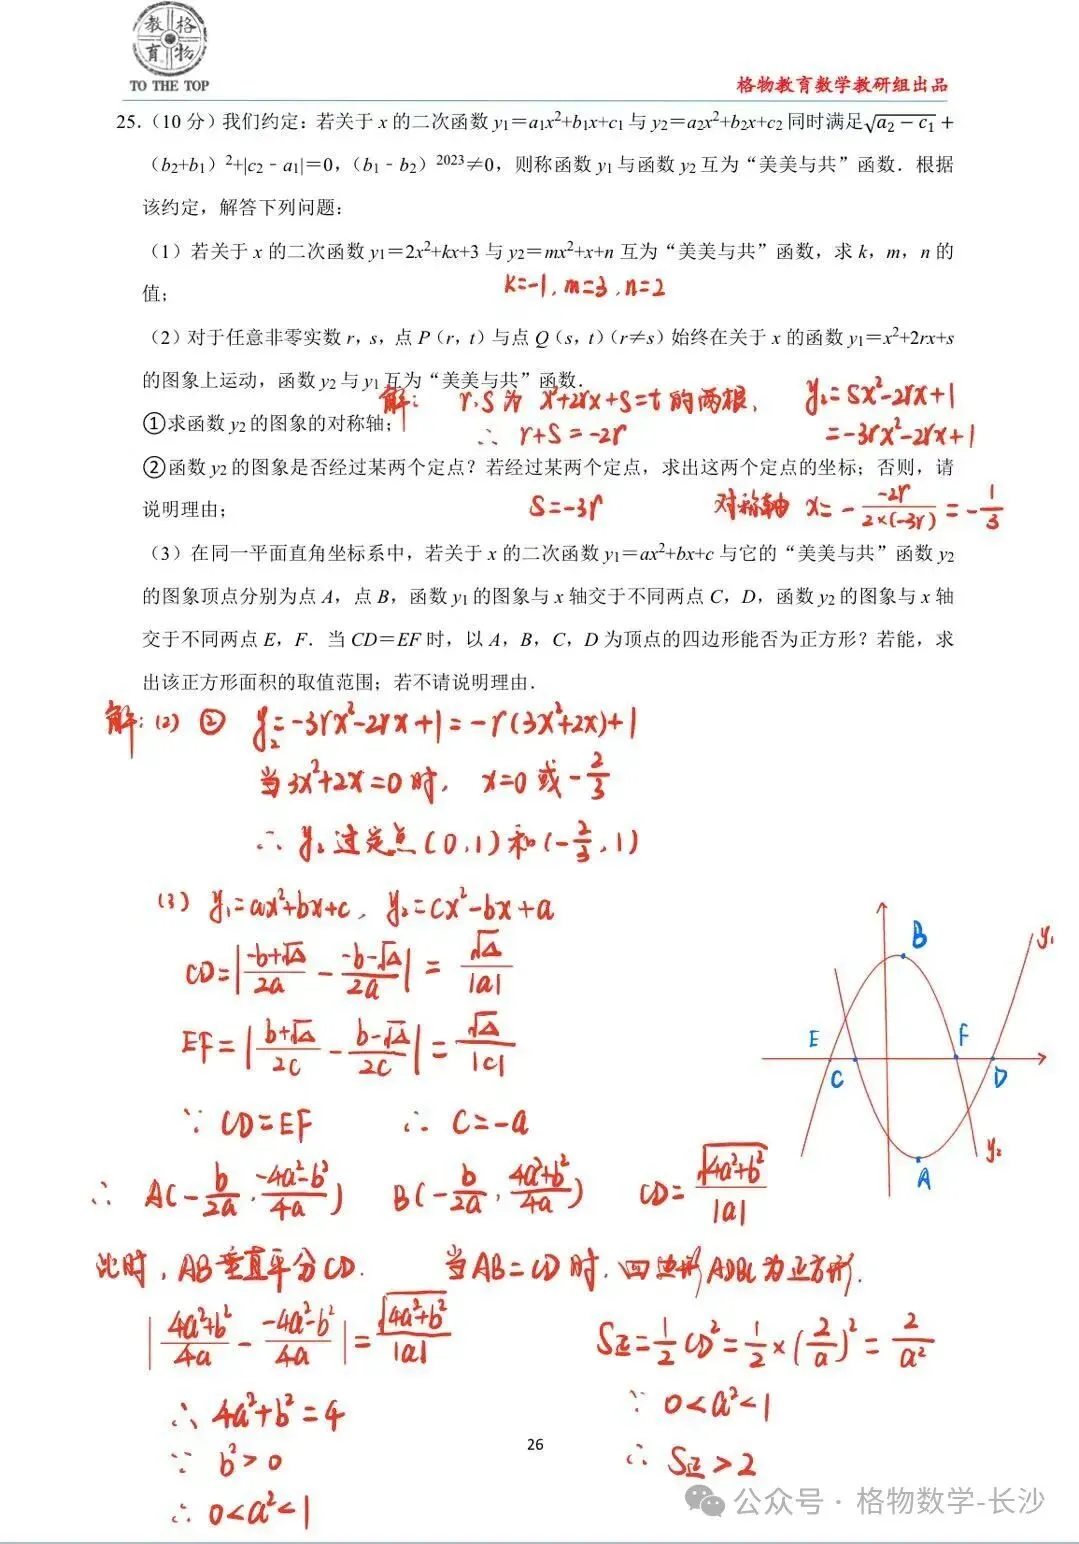 教格育物
TO THE TOP
格物教育数学教研组出品
25.(10 分)我们约定：若关于 x 的二次函数 y₁＝a₁x²+b₁x+c₁ 与 y₂＝a₂x²+b₂x+c₂ 同时满足√(a₂－c₁) +
(b₂+b₁)²+|c₂﹣a₁|＝0，(b₁﹣b₂)²⁰²³≠0，则称函数 y₁ 与函数 y₂ 互为“美美与共”函数．根据
该约定，解答下列问题：
（1）若关于 x 的二次函数 y₁＝2x²+kx+3 与 y₂＝mx²+x+n 互为“美美与共”函数，求 k，m，n 的
值；
k=-1, m=3, n=2
（2）对于任意非零实数 r，s，点 P（r，t）与点 Q（s，t）（r≠s）始终在关于 x 的函数 y₁＝x²+2rx+s
的图象上运动，函数 y₂ 与 y₁ 互为“美美与共”函数．
解： r.s为 x²+2rx+s=t 的两根, y₂=sx²-2rx+1
①求函数 y₂ 的图象的对称轴；
∴ r+s=-2r =-3rx²-2rx+1
②函数 y₂ 的图象是否经过某两个定点？若经过某两个定点，求出这两个定点的坐标；否则，请
说明理由；
s=-3r 对称轴 x=- -2r/(2×(-3r)) = -1/3
（3）在同一平面直角坐标系中，若关于 x 的二次函数 y₁＝ax²+bx+c 与它的“美美与共”函数 y₂
的图象顶点分别为点 A，点 B，函数 y₁ 的图象与 x 轴交于不同两点 C，D，函数 y₂ 的图象与 x 轴
交于不同两点 E，F．当 CD＝EF 时，以 A，B，C，D 为顶点的四边形能否为正方形？若能，求
出该正方形面积的取值范围；若不请说明理由．
解：(2) ② y₂=-3rx²-2rx+1=-r(3x²+2x)+1
当3x²+2x=0时, x=0或-2/3
∴ y₂过定点(0,1)和(-2/3,1)
(3) y₁=ax²+bx+c, y₂=cx²-bx+a
CD=|(-b+√Δ)/2a - (-b-√Δ)/2a| = √Δ/|a|
EF=|(b+√Δ)/2c - (b-√Δ)/2c| = √Δ/|c|
∵ CD=EF ∴ C=-a
B
y₁
E
C
F
D
A
y₂
∴ A(-b/2a, (-4a²-b²)/4a) B(-b/2a, (4a²+b²)/4a) CD=√(4a²+b²)/|a|
此时, AB垂直平分CD. 当AB=CD时, 四边形ADBC为正方形.
|(4a²+b²)/4a - (-4a²-b²)/4a| = √(4a²+b²)/|a|
S正=1/2CD²=1/2×(2/a)²=2/a²
∴ 4a²+b²=4
∵ 0<a²<1
∵ b²>0
∴ S正>2
∴ 0<a²<1
26
公众号 · 格物数学-长沙